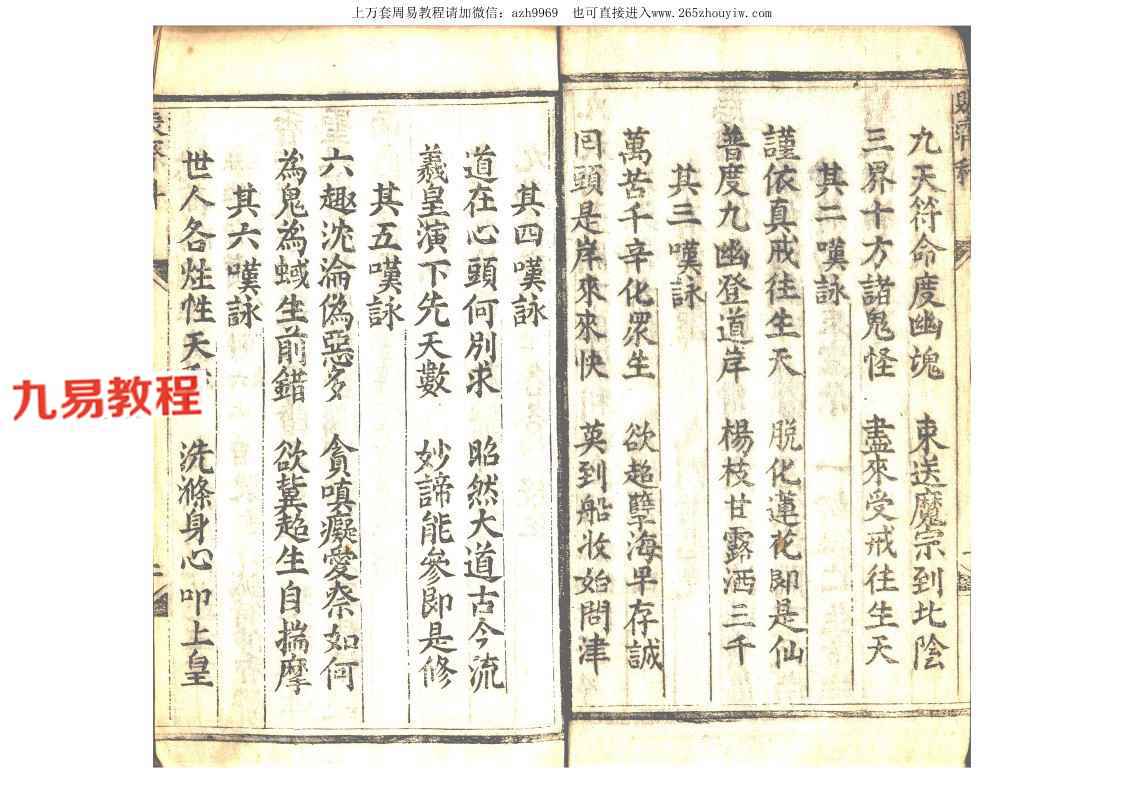 上万套周易教程请加微信：azh9969 也可直接进入www.265zhouyiw.com
九天符命度幽魂 東送魔宗到北陰
三界十方諸鬼怪 盡來受戒往生天
其二嘆詠
謹依真戒往生天 脱化蓮花即是仙
普度九幽登道岸 楊枝甘露洒三千
其三嘆詠
萬苦千辛化眾生 欲超孽海早存誠
回頭是岸來來快 莫到船收始問津
其四嘆詠
道在心頭何別求 昭然大道古今流
羲皇演下先天數 妙諦能參即是修
其五嘆詠
六趣沈淪偽惡多 貪嗔癡愛奈如何
為鬼為蜮生前錯 欲冀超生自揣摩
其六嘆詠
世人各性性天 洗滌身心叩上皇
九易教程